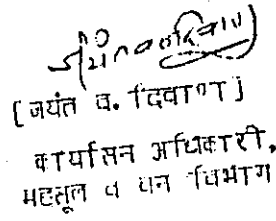 [ जयंत व. दिवाण ]
कार्यासन अधिकारी,
महसूल व वन विभाग